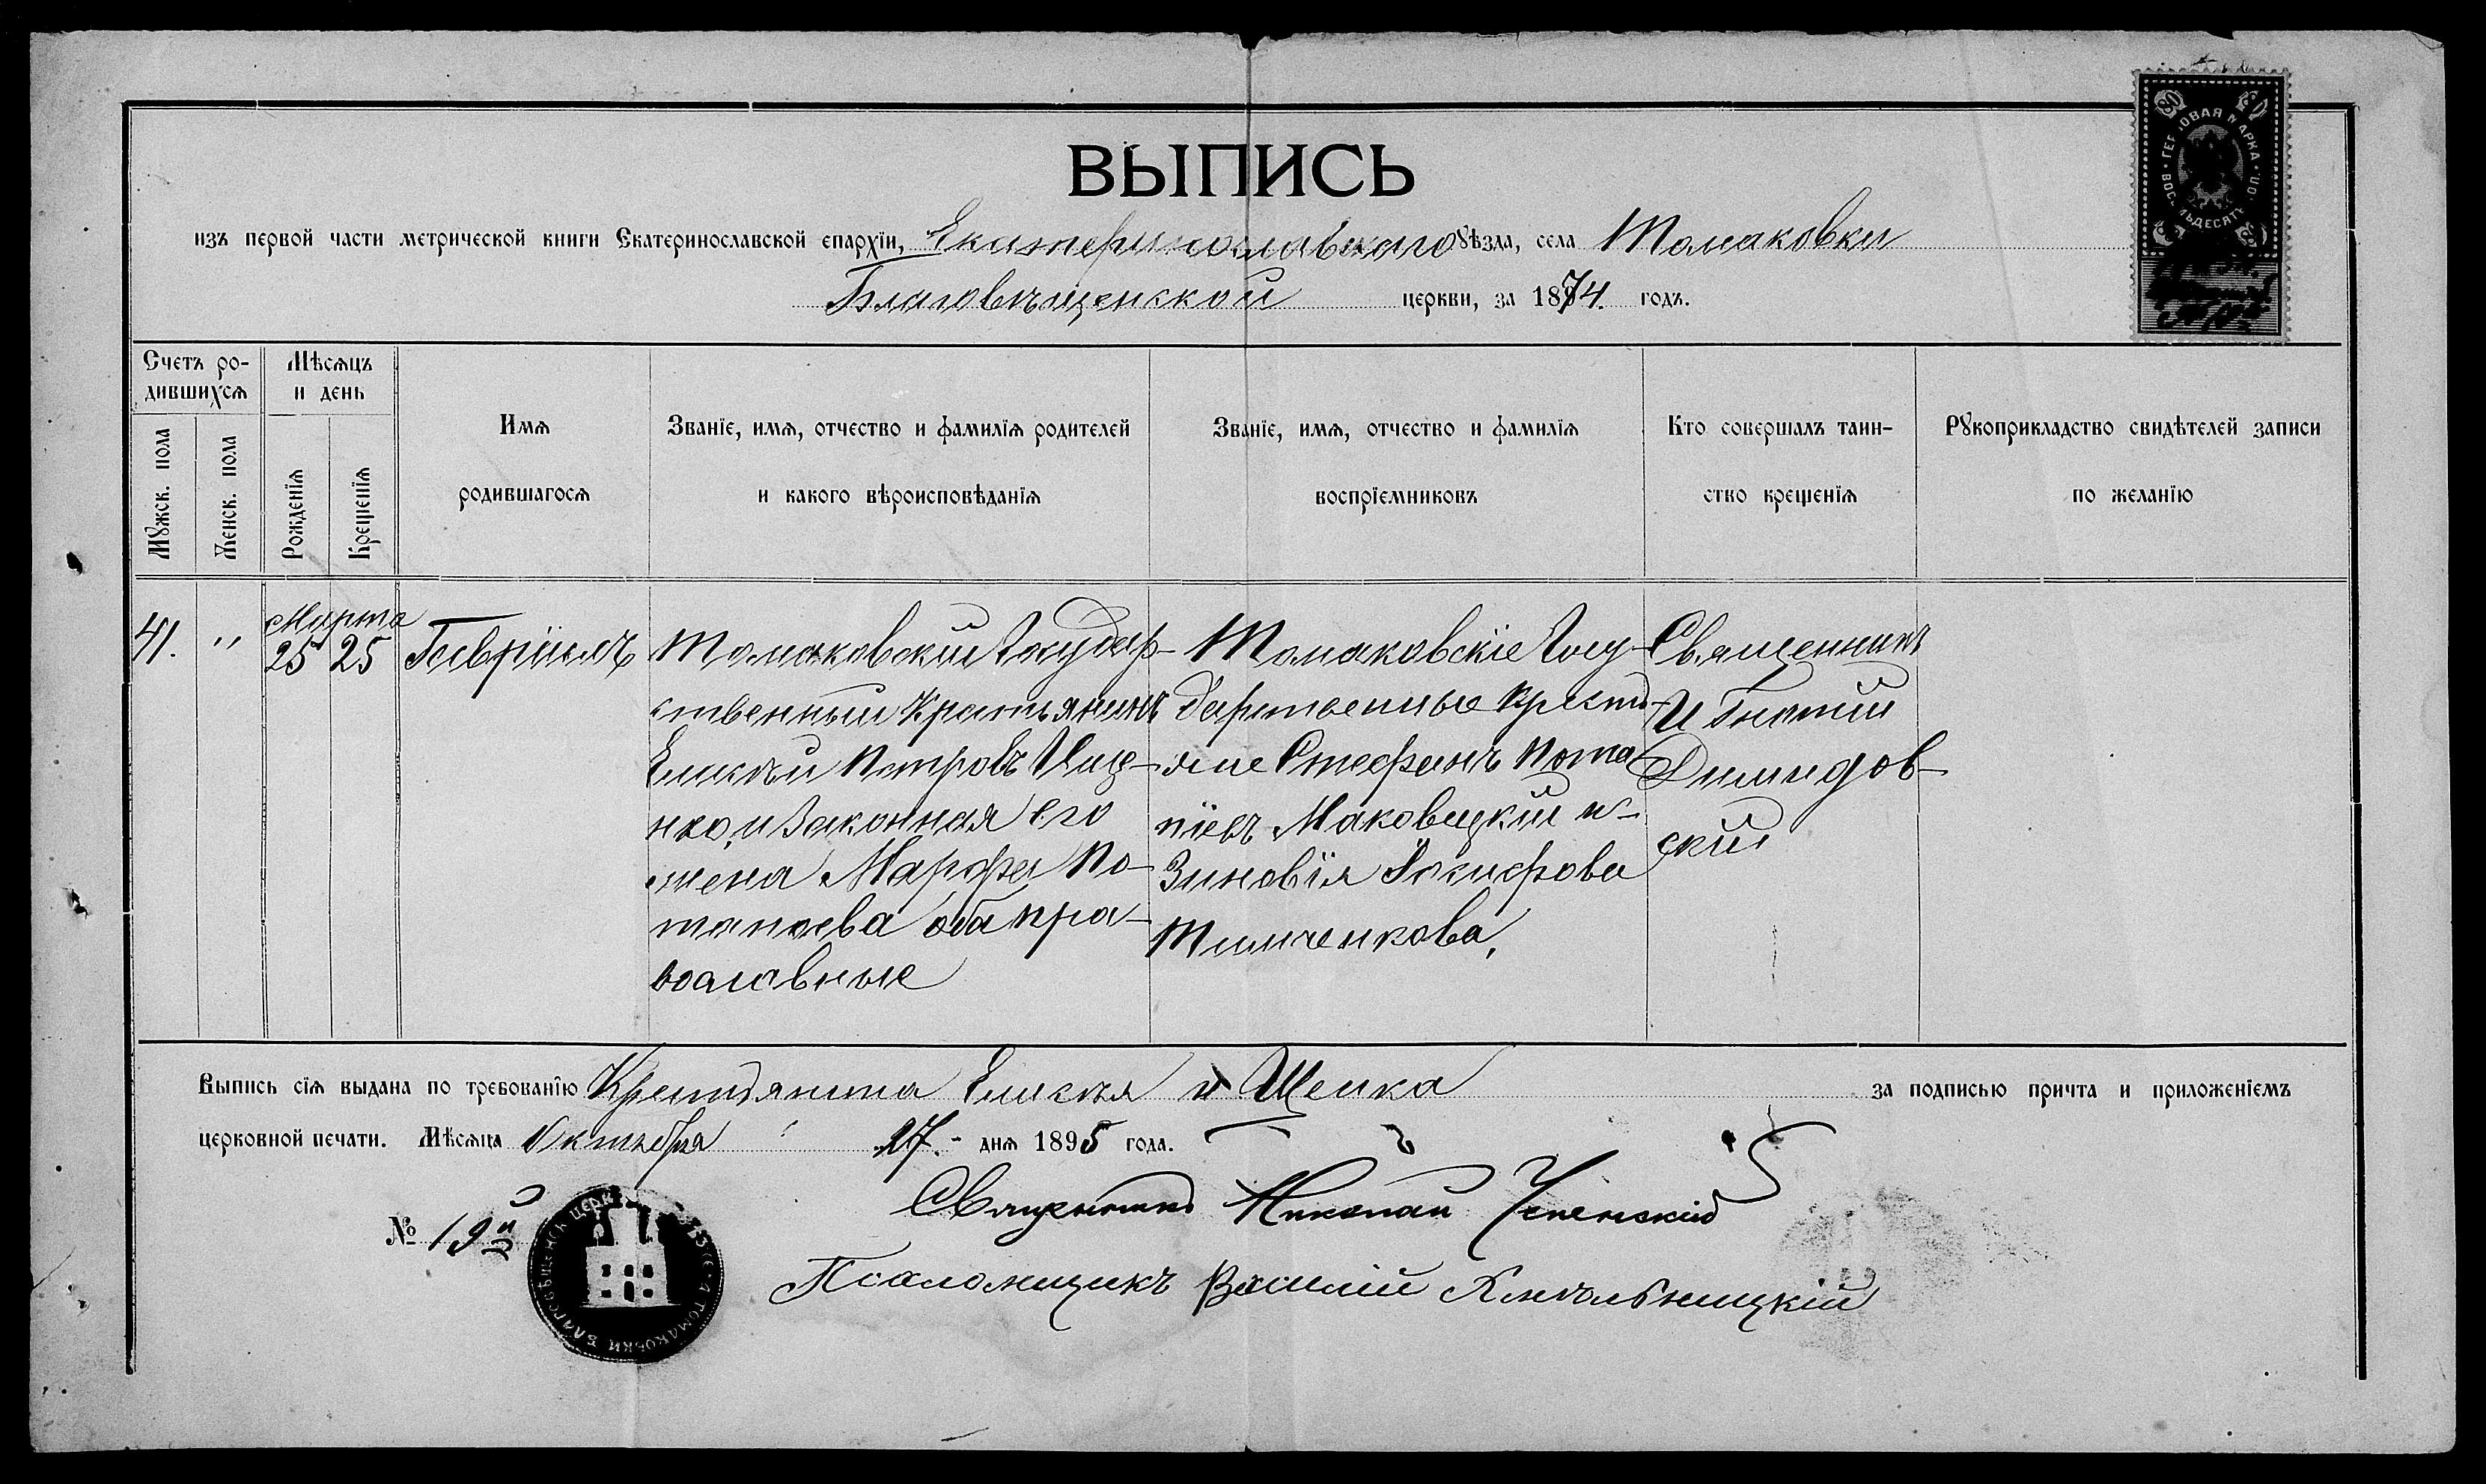 ВЫПИСЬ
изъ первой части метрической книги Екатеринославской епархїи, Екатеринославскаго уѣзда, села Томаковки
Благовѣщенской церкви, за 1874. годъ.
Счетъ ро-
дившихся
Мѣсяцъ
и день
Мужск. пола
Женск. пола
Рожденїя
Крещенїя
Имя
родившагося
Званїе, имя, отчество и фамилїя родителей
и какого вѣроисповѣданїя
Званїе, имя, отчество и фамилїя
воспрїемниковъ
Кто совершалъ таин-
ство крещенїя
Рукоприкладство свидѣтелей записи
по желанїю
41.
"
Марта
25
25
Гавріилъ
Томаковскій Государ-
ственный Крестьянинъ
Елисѣй Петровъ Ище-
нко, и Законная его
жена Марфа По-
тапоева оба пра-
вославные
Томаковскіе Госу-
дарственные Кресть-
яне Стефанъ Пота
піевъ Маковецкій и-
Зиновія Іосифова
Тимченкова,
Священникъ
Игнатій
Димидов-
скій
Выпись сїя выдана по требованїю Крестьянина Елисѣя Ищенка за подписью причта и приложенїемъ
церковной печати. Мѣсяца Октября 27.- дня 1895 года.
Священникъ Николай Успенскій
№ 19
Псаломщикъ Василій Хмѣльницкій
ГЕРБОВАЯ МАРКА
ВОСЕМЬДЕСЯТЪ
80